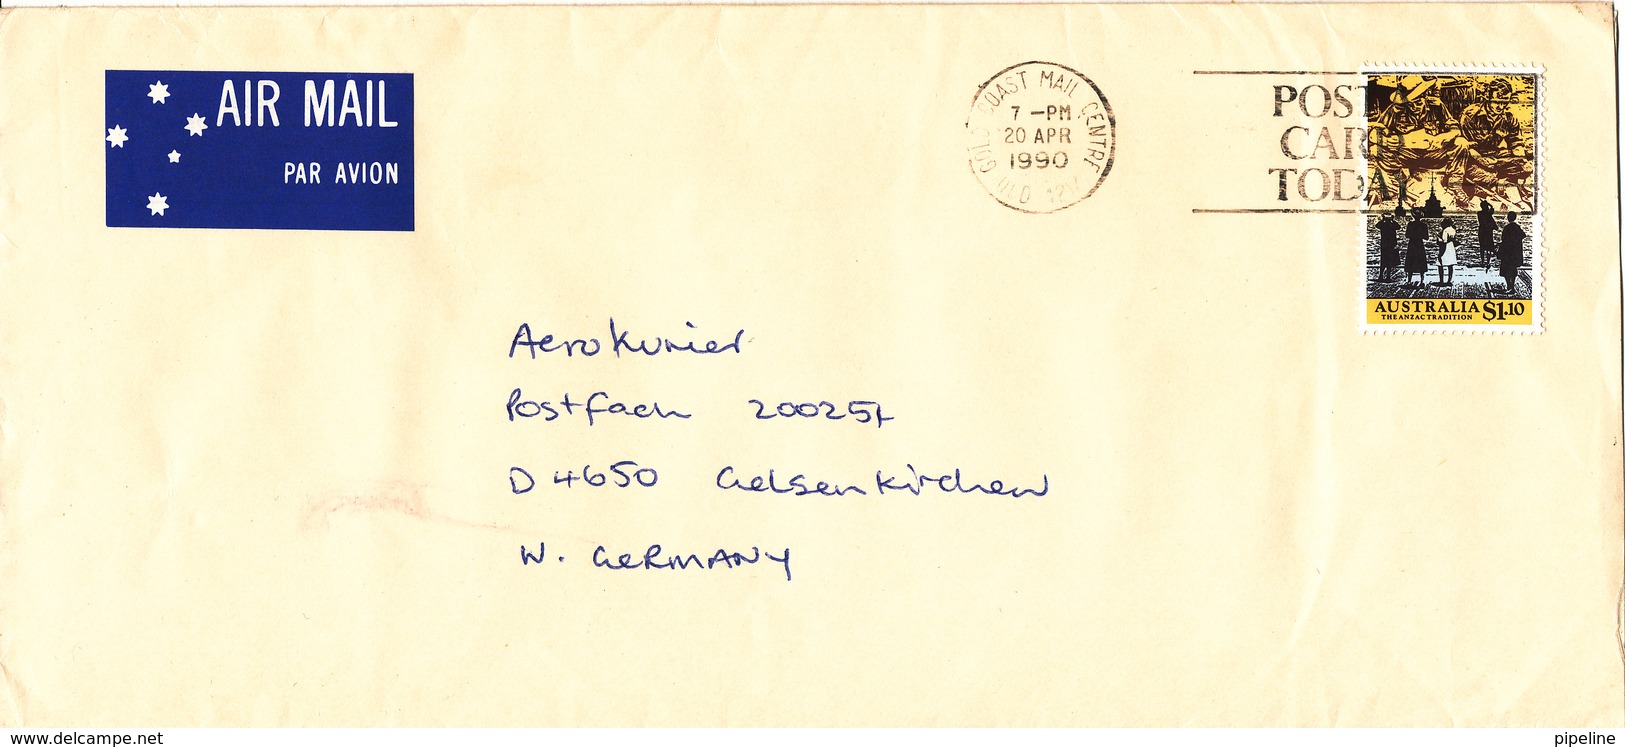 AIR MAIL
PAR AVION
GOLD COAST MAIL CENTRE
7 -PM
20 APR
1990
QLD
POST A
CARD
TODAY
AUSTRALIA $1.10
THE ANZAC TRADITION
Aerokurier
Postfach
D 4650 Gelsenkirchen
W. GERMANY
www.delcampe.net
pipeline